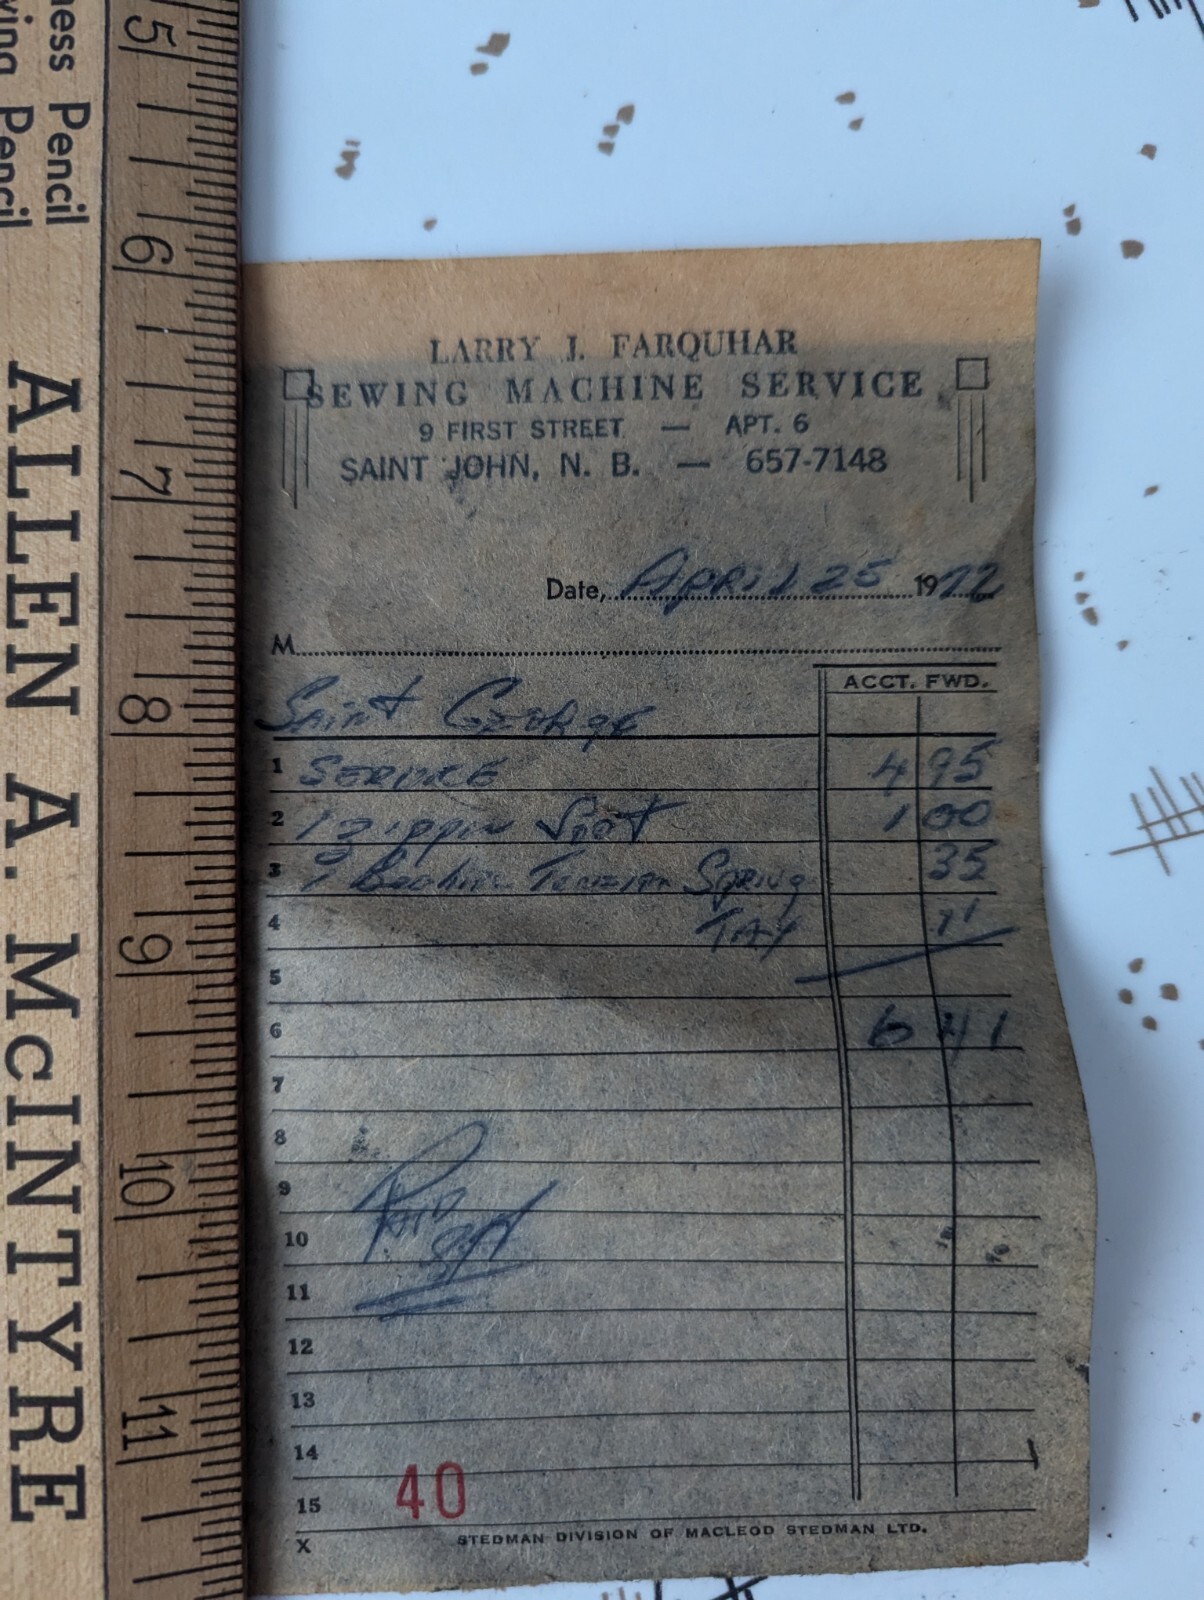 ness Pencil
Pencil
ALLEN A. McINTYRE
5
6
7
8
9
10
11
LARRY J. FARQUHAR
SEWING MACHINE SERVICE
9 FIRST STREET — APT. 6
SAINT JOHN, N. B. — 657-7148
Date, April 25 1972
M
ACCT. FWD.
Saint George
1 SERVICE 4 95
2 1 00
3 1 Bobbin Tension Spring 35
4 TAX 11
5
6 6 41
7
8
9 Paid
10
11
12
13
14
15 40
X STEDMAN DIVISION OF MACLEOD STEDMAN LTD.